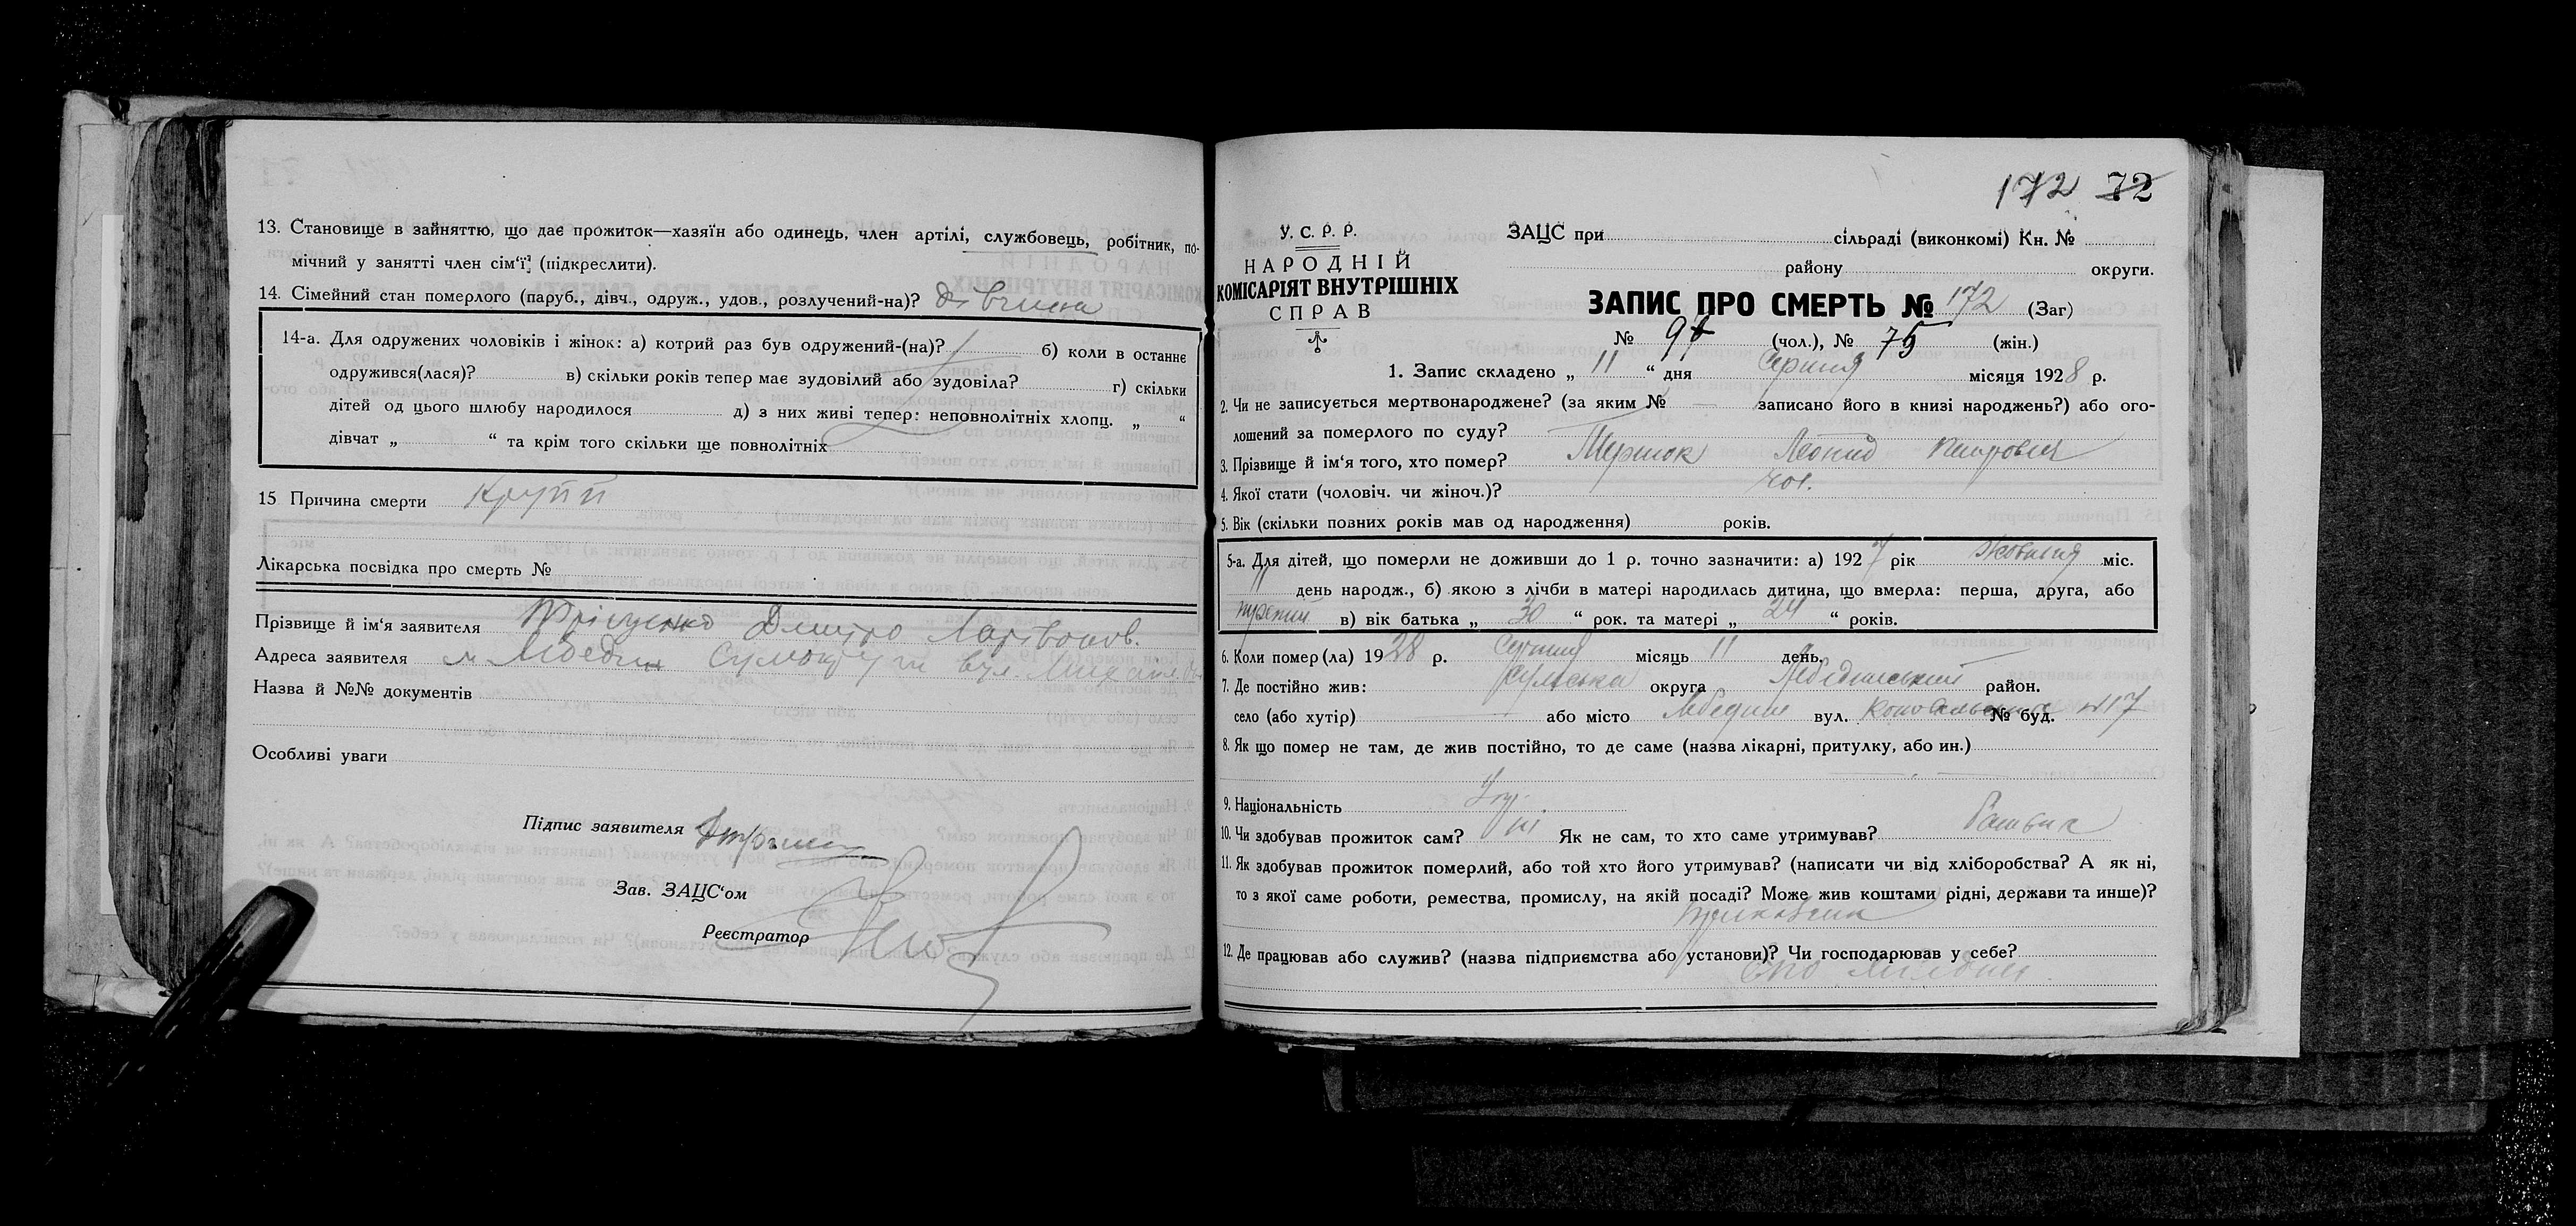 13. Становище в зайняттю, що дає прожиток—хазяїн або одинець, член артілі, службовець, робітник, по-
мічний у занятті член сім'ї (підкреслити).
14. Сімейний стан померлого (паруб., дівч., одруж., удов., розлучений-на)? дівчина
14-а. Для одружених чоловіків і жінок: а) котрий раз був одружений-(на)? б) коли в останнє
одружився(лася)? в) скільки років тепер має зудовілий або зудовіла? г) скільки
дітей од цього шлюбу народилося д) з них живі тепер: неповнолітніх хлопц. „ “
дівчат „ “ та крім того скільки ще повнолітніх
15 Причина смерти Крупп
Лікарська посвідка про смерть №
Прізвище й ім'я заявителя Дмитро Ларівонов.
Адреса заявителя м Лебедин Сумокруги вул.
Назва й №№ документів
Особливі уваги
Підпис заявителя
Зав. ЗАЦС'ом
Реєстратор
172 72
У. С. Р. Р.
НАРОДНІЙ
КОМІСАРІЯТ ВНУТРІШНІХ
СПРАВ
ЗАЦС при сільраді (виконкомі) Кн. №
району округи.
ЗАПИС ПРО СМЕРТЬ № 172 (Заг)
№ 97 (чол.), № 75 (жін.)
1. Запис складено „ 11 “ дня Серпня місяця 1928 р.
2. Чи не записується мертвонароджене? (за яким № — записано його в книзі народжень?) або ого-
лошений за померлого по суду?
3. Прізвище й ім'я того, хто помер? Леонид Петрович
4. Якої стати (чоловіч. чи жіноч.)? чол.
5. Вік (скільки повних років мав од народження) років.
5-а. Для дітей, що померли не доживши до 1 р. точно зазначити: а) 1927 рік Жовтня міс.
11 день народж., б) якою з лічби в матері народилась дитина, що вмерла: перша, друга, або
третий в) вік батька „ 30 “ рок. та матері „ 24 “ років.
6. Коли помер (ла) 1928 р. Серпня місяць 11 день.
7. Де постійно жив: Сумська округа Лебединський район.
село (або хутір) — або місто Лебедин вул. № буд. №17
8. Як що помер не там, де жив постійно, то де саме (назва лікарні, притулку, або ин.)
9. Національність Укр.
10. Чи здобував прожиток сам? ні Як не сам, то хто саме утримував? Батько
11. Як здобував прожиток померлий, або той хто його утримував? (написати чи від хліборобства? А як ні,
то з якої саме роботи, ремества, промислу, на якій посаді? Може жив коштами рідні, держави та инше)?
12. Де працював або служив? (назва підприємства або установи)? Чи господарював у себе?